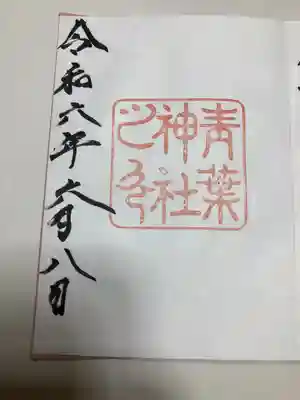 青葉
神社
之印
令和六年六月八日